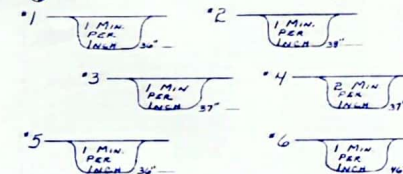 #1
1 MIN.
PER
INCH
36"
#2
1 MIN.
PER
INCH
38"
#3
1 MIN.
PER
INCH
37"
#4
2 MIN
PER
INCH
37"
#5
1 MIN.
PER
INCH
36"
#6
1 MIN.
PER
INCH
46